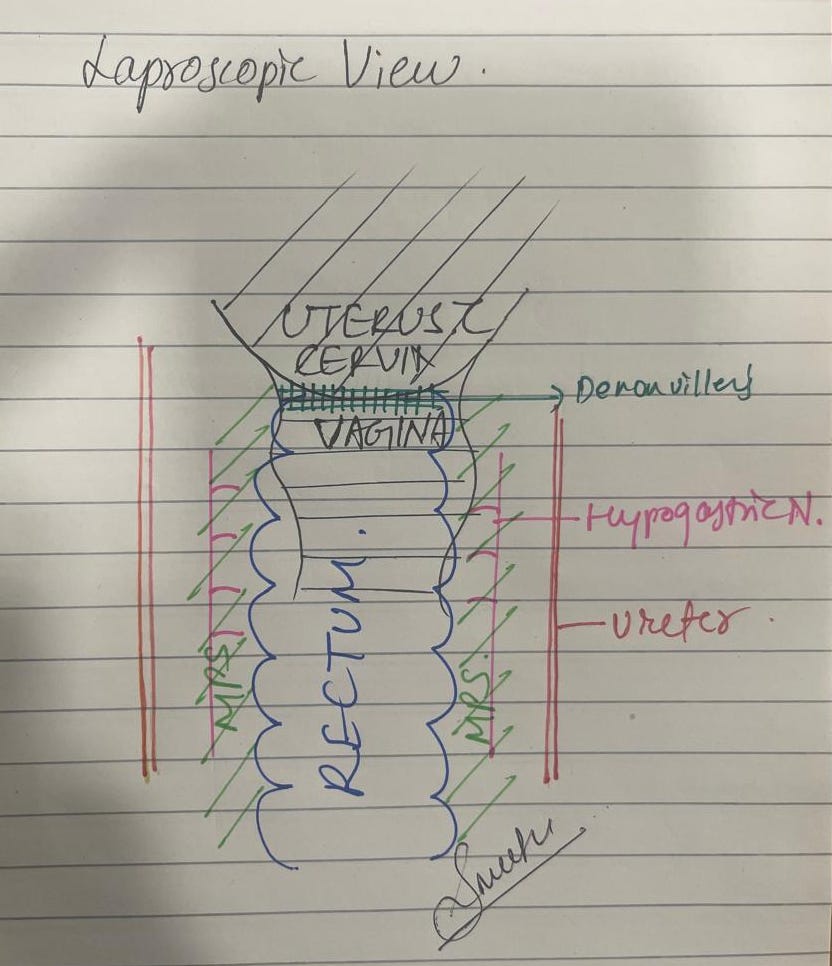 Laproscopic View.
UTERUS &
CERVIX
Denonvillers
VAGINA
Hypogastric N.
RECTUM.
Ureter.
MRS
MRS.